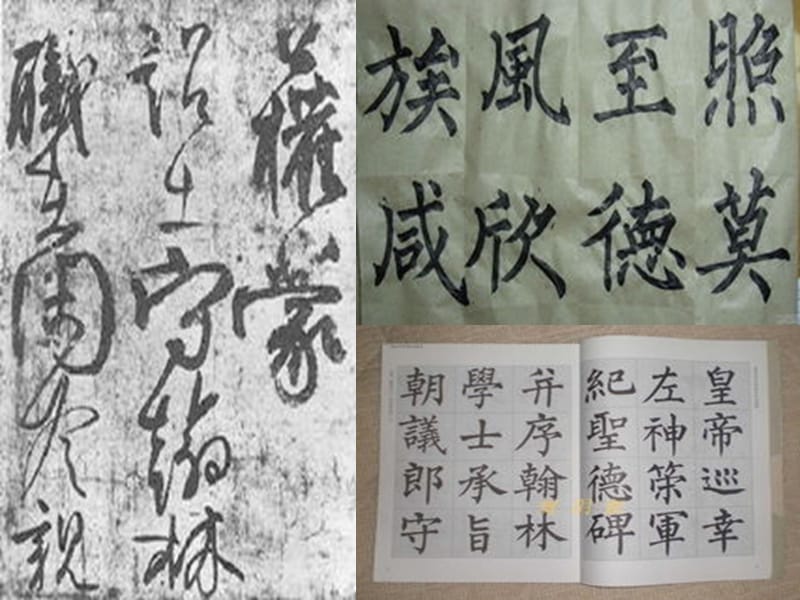 公權蒙
詔出守翰林
職在閑冷親
照莫
至德
風欣
族咸
皇帝巡幸
左神策軍
紀聖德碑
并序翰林
學士承旨
朝議郎守